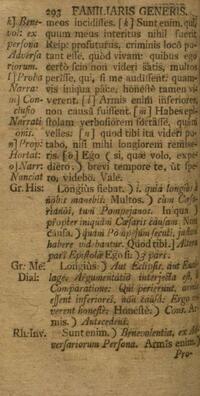 293 FAMILIARIS GENERIS.
k] Bene- meos incidisses. [k] Sunt enim, qui,
vol: ex quum meus interitus nihil fuerit
persona Reip: profuturus, criminis locō pu-
Adversa tant esse, quòd vivam: quibus ego
riorum. certò sciō non videri satis, multos
l] Proba periisse, qui, si me audissent, quam-
Narra: vis iniqua pāce, honestè tamen vi-
m] Con- verent. [l] Armis enim inferiores,
clusio non causâ fuissent. [m] Habes epi-
Narrati stolam verbosiorem fortasse, quàm
onis. velles: [n] quod tibi ita videri pu-
n] Prop: tabo, nisi mihi longiorem remise-
Hortat: ris. [o] Ego (si, quae volo, expe-
o] Narr: diero,) brevi tempore te, ut spe-
Nunciat ro, videbo. Vale.
Gr: His: Longiùs fiebat.) i. quia longiùs à
nobis manebis: Multos.) cùm Caesa-
rianos, tum Pompejanos. In qua
propter iniquum Caesaris causam Non
causa.) quàm Pompejum secuti, justam
habere videbantur. Quod tibi.] Altera
pars Epistolae Ego si.) 3 pars:
Gr: Me: Longiùs.) Aut Eclipsis, aut Enal-
Dial: lage: Argumentatio interjecta est,
Comparatione: Qui perierunt, armis
essent inferiores, non causâ: Ergo vi-
verent honestè: Honestè.) Cons. Ar-
mis.) Antecedens.
Rh: Inv. Sunt enim.) Benevolentia, ex Ad-
versariorum Persona. Armis enim.)
Pro-